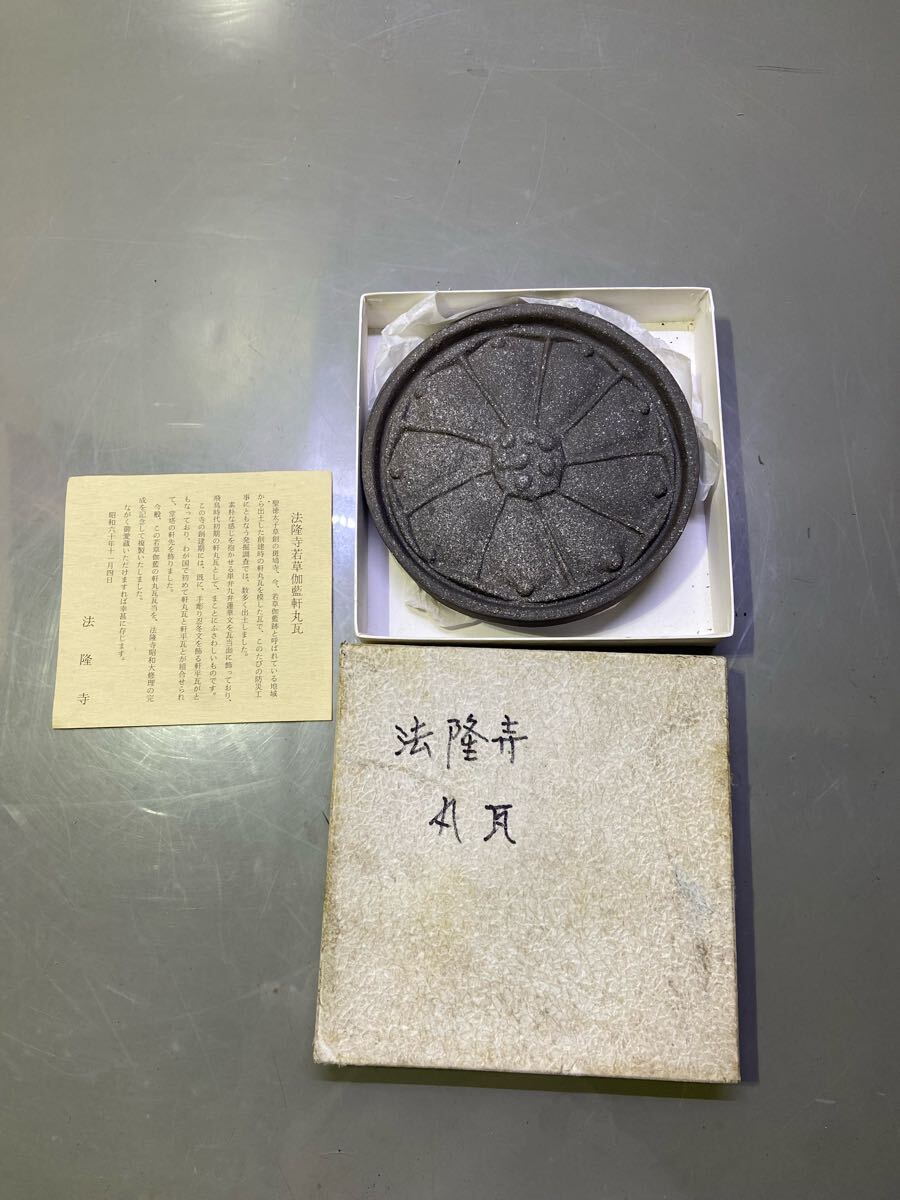 法隆寺若草伽藍軒丸瓦
聖徳太子草創の斑鳩寺、今、若草伽藍跡と呼ばれている地域
から出土した創建時の軒丸瓦を模した瓦で、このたびの防災工
事にともなう発掘調査では、数多く出土しました。
素朴な感じを抱かせる単弁九弁蓮華文を瓦当面に飾っており、
飛鳥時代初期の軒丸瓦として、まことにふさわしいものです。
この寺の創建期には、既に、手彫り忍冬文を飾る軒平瓦がと
もなっており、わが国で初めて軒丸瓦と軒平瓦とが組合せられ
て、堂塔の軒先を飾りました。
今般、この若草伽藍の軒丸瓦瓦当を、法隆寺昭和大修理の完
成を記念して複製いたしました。
ながく御愛蔵いただけますれば幸甚に存じます。
昭和六十年十一月四日
法隆寺
法隆寺
丸瓦